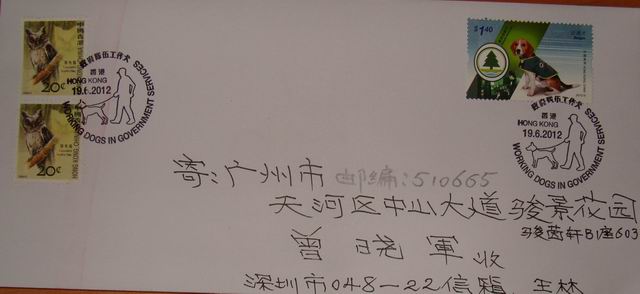 20¢
20¢
政府部伍工作犬
香港
HONG KONG
19.6.2012
WORKING DOGS IN GOVERNMENT SERVICES
$1.40
政府部伍工作犬
香港
HONG KONG
19.6.2012
WORKING DOGS IN GOVERNMENT SERVICES
寄:广州市 邮编:510665
天河区中山大道骏景花园
骏茵轩B1座603
曾晓軍 收
深圳市048-22信箱 王林